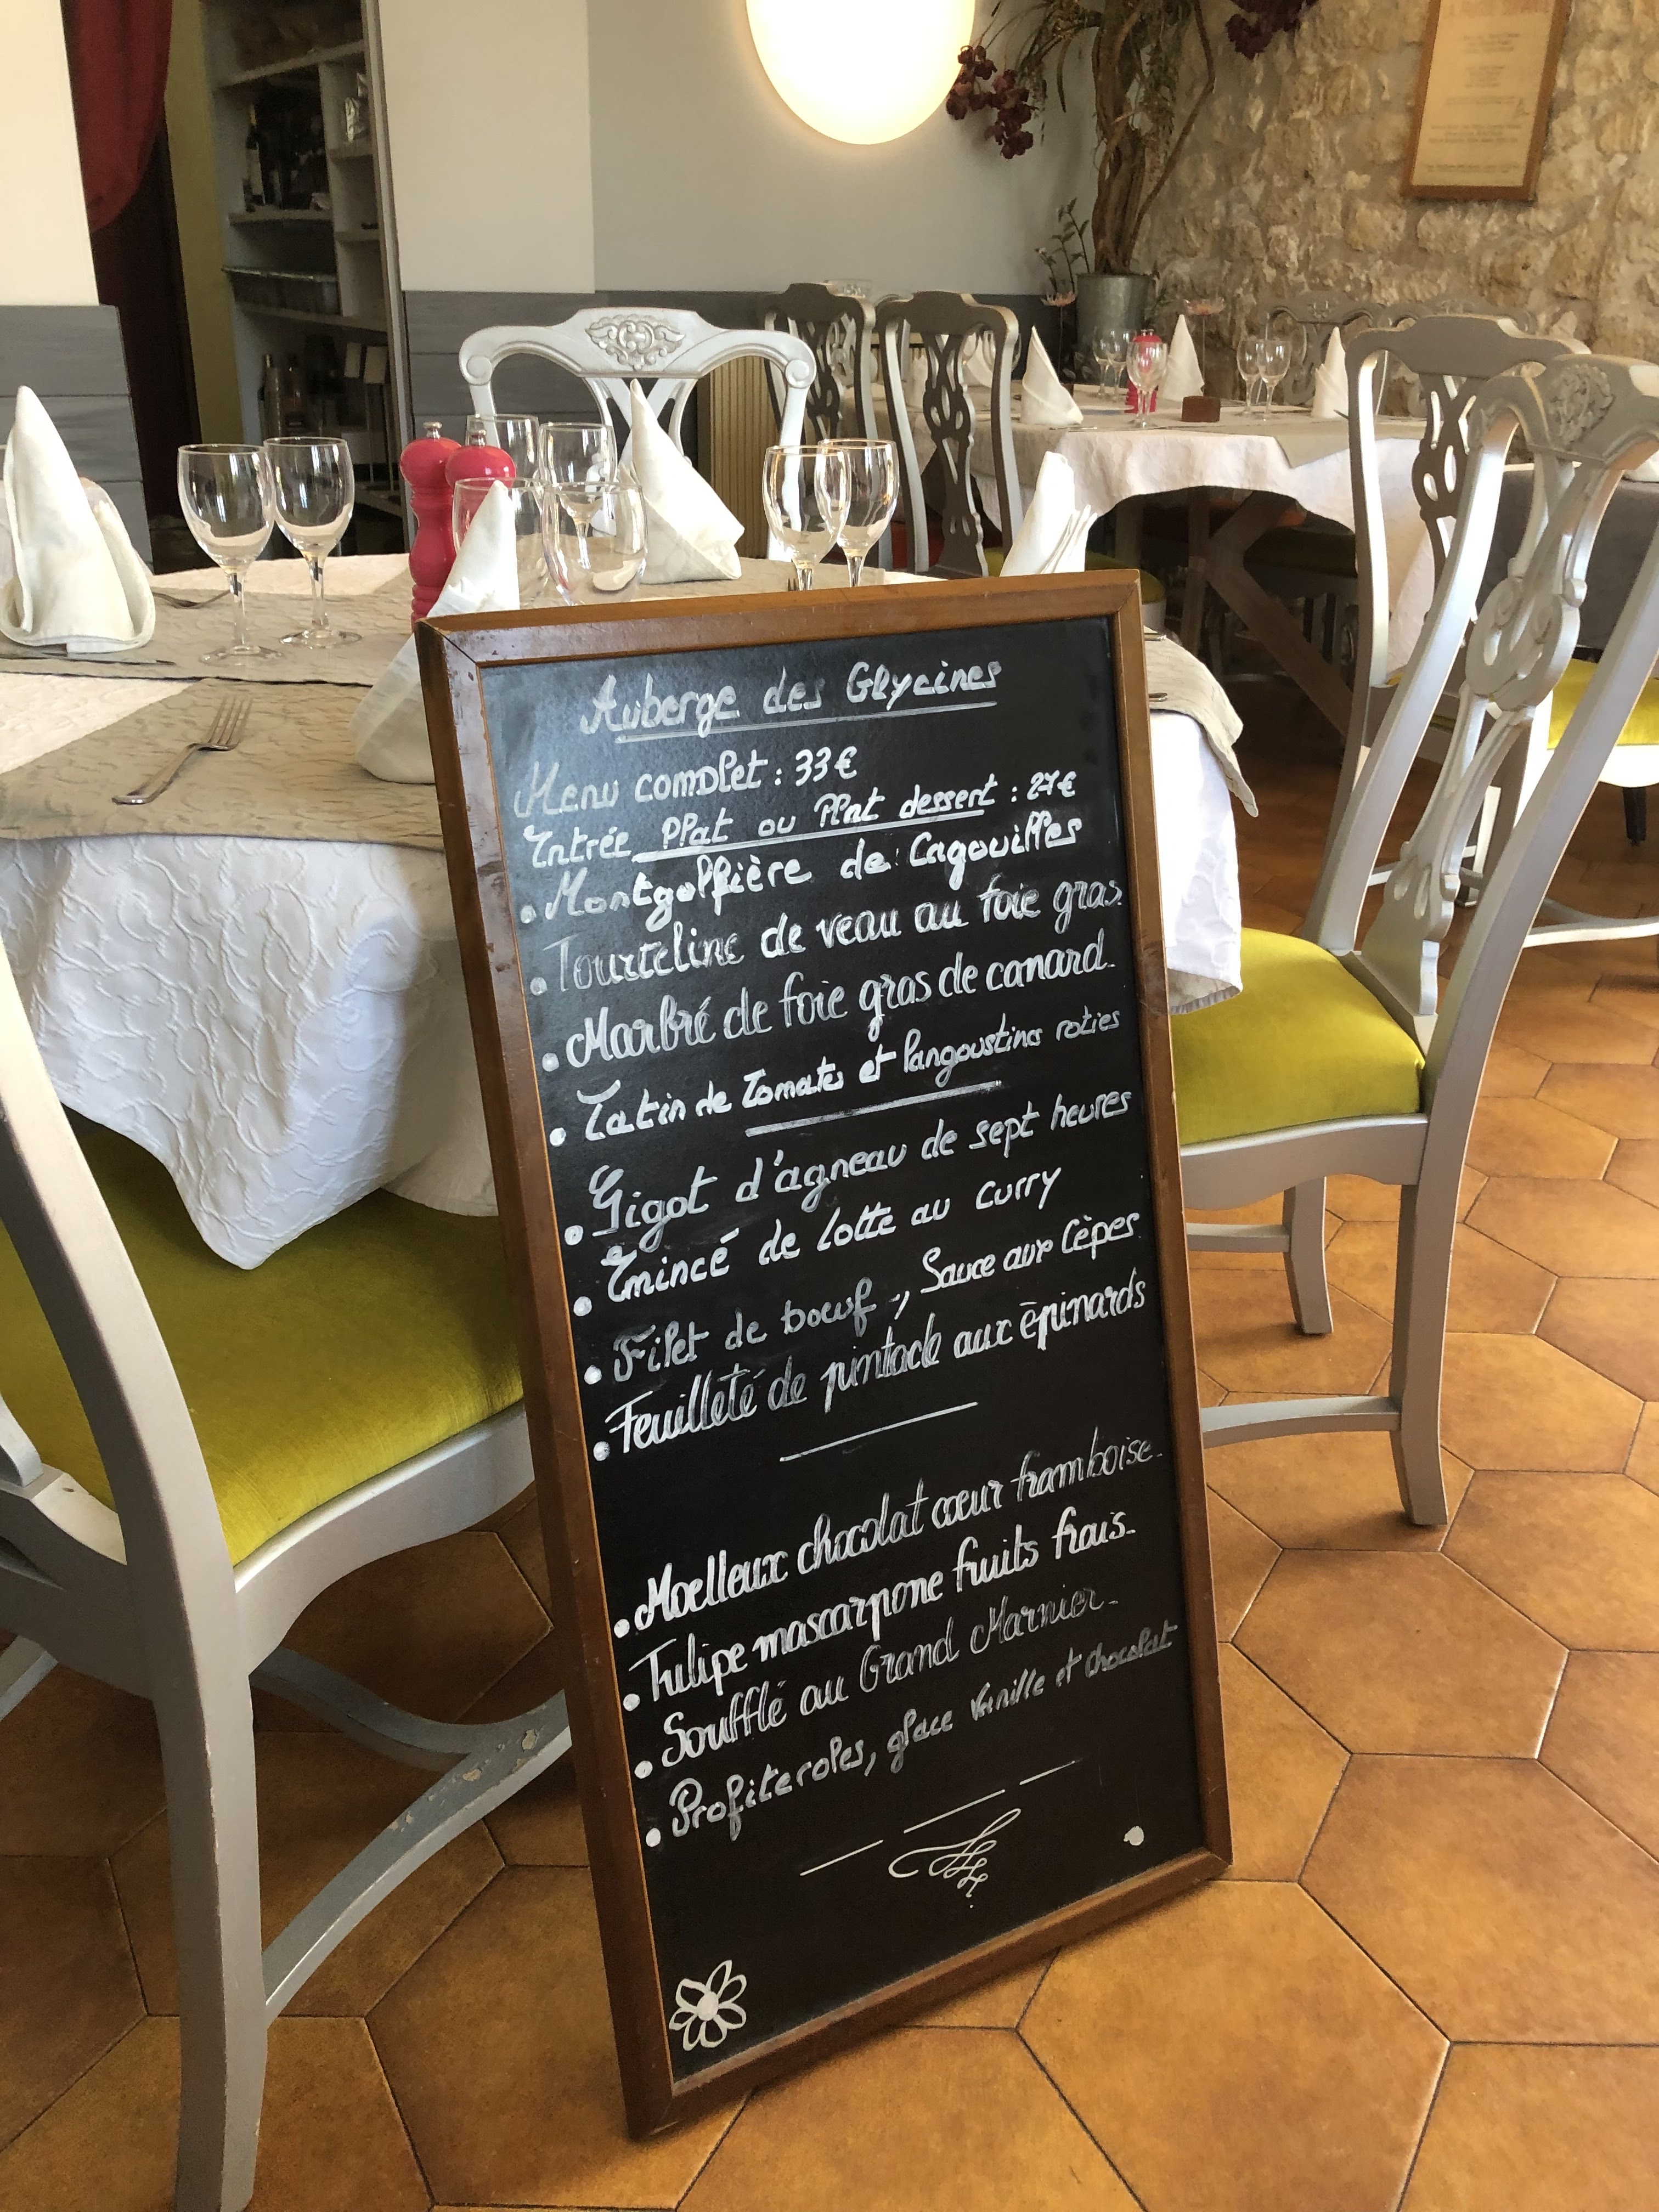 Auberge des Glycines
Menu complet : 33€
Entrée Plat ou Plat dessert : 27€
• Montgolfière de Cagouilles
• Tourteline de veau au foie gras.
• Marbré de foie gras de canard.
• Tatin de Tomates et langoustines roties
• Gigot d'agneau de sept heures
• Emincé de lotte au curry
• Filet de boeuf, Sauce aux Cèpes
• Feuilleté de pintade aux épinards
• Moelleux chocolat coeur framboise.
• Tulipe mascarpone fruits frais.
• Soufflé au Grand Marnier.
• Profiteroles, glace vanille et chocolat